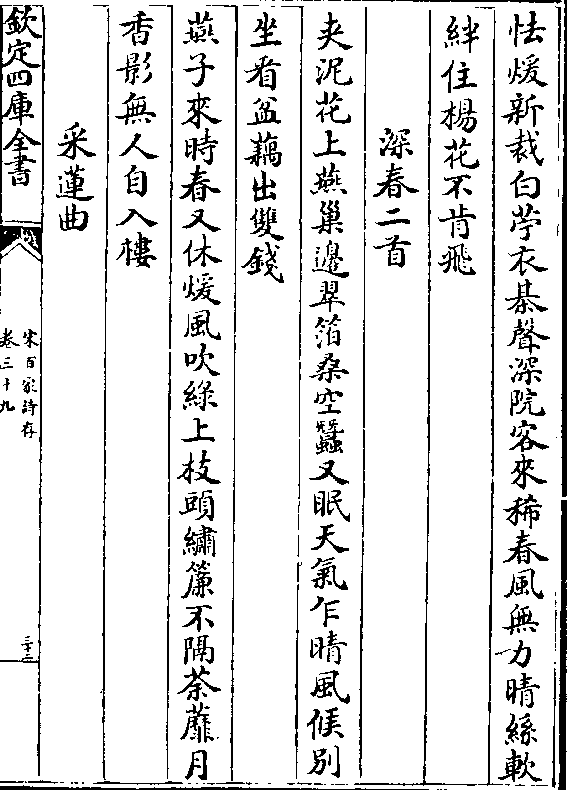 怯煖新裁白苧衣棊聲深院客來稀春風無力晴絲軟
絆住楊花不肯飛
深春二首
夾泥花上燕巢邊翠箔桑空蠶又眠天氣乍晴風候别
坐看盆藕出雙錢
燕子來時春又休煖風吹綠上枝頭繡簾不隔荼蘼月
香影無人自入樓
采蓮曲
欽定四庫全書
宋百家詩存
卷三十九
三十二